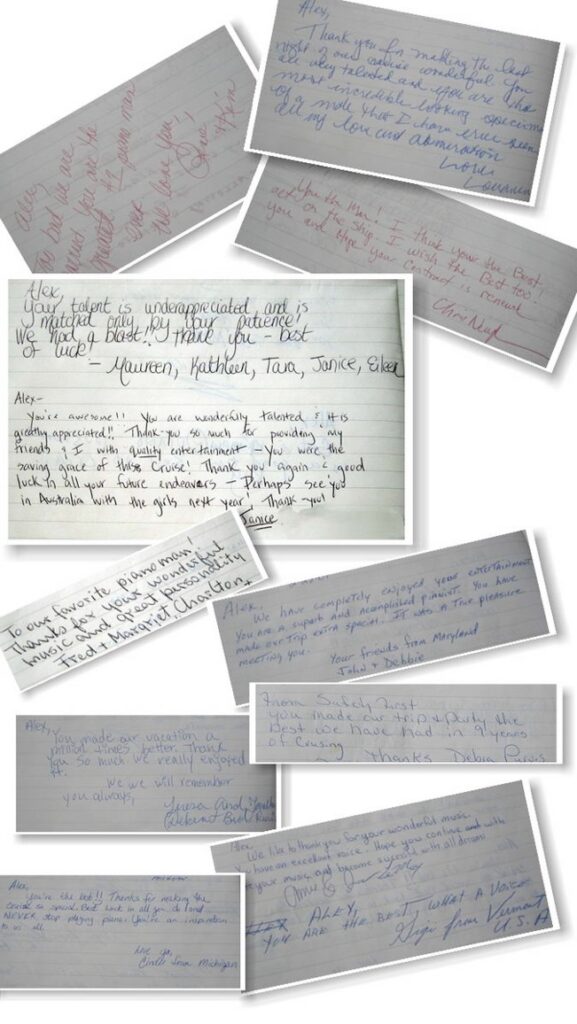 Alex,
Thank you for making the last
night of our cruise wonderful. You
are very talented and you are the
most incredible looking specimen
of a male that I have ever seen
all my love and admiration
Love
Alex,
Too bad we are
You are the
greatest piano man
We love you!
You the Man! I think your the Best
act on the ship. I wish the Best too!
you and Hope your Contract is renewed
Alex,
Your talent is underappreciated and is
matched only by your patience!
We had a blast!! Thank you - best
of luck!
- Maureen, Kathleen, Tara, Janice, Eileen
Alex-
You're awesome!! You are wonderfully talented & it is
greatly appreciated!! Thank you so much for providing my
friends & I with quality entertainment - You were the
saving grace of this Cruise! Thank you again & good
luck in all your future endeavors - Perhaps see you
in Australia with the girls next year! Thank-you!
Janice
To our favorite piano man!
Thanks for your wonderful
music and great personality
Fred + Margriet, Charlton,
Alex,
We have completely enjoyed your entertainment
You are a superb and accomplished pianist. You have
made our trip extra special. It was a true pleasure
meeting you.
Your friends from Maryland
John & Debbie
From
you made our trip & party the
best we have had in 9 years
of Crusing
Thanks Debra Purvis
Alex,
You made our vacation a
million times better. Thank
you so much we really enjoyed
it.
We we will remember
you always,
Teresa and
Alex,
We like to thank you for your wonderful music.
You have an excellent voice. Hope you continue and with
your music and become success with all dreams
ALEX,
YOU ARE THE BEST, WHAT A VOICE
Gigi from Vermont
U.S.A
Alex,
You're the best!! Thanks for making the
cruise so special. Best luck in all you do and
NEVER stop playing piano. You're an inspiration
to us all.
Love ya,
Cindy from Michigan